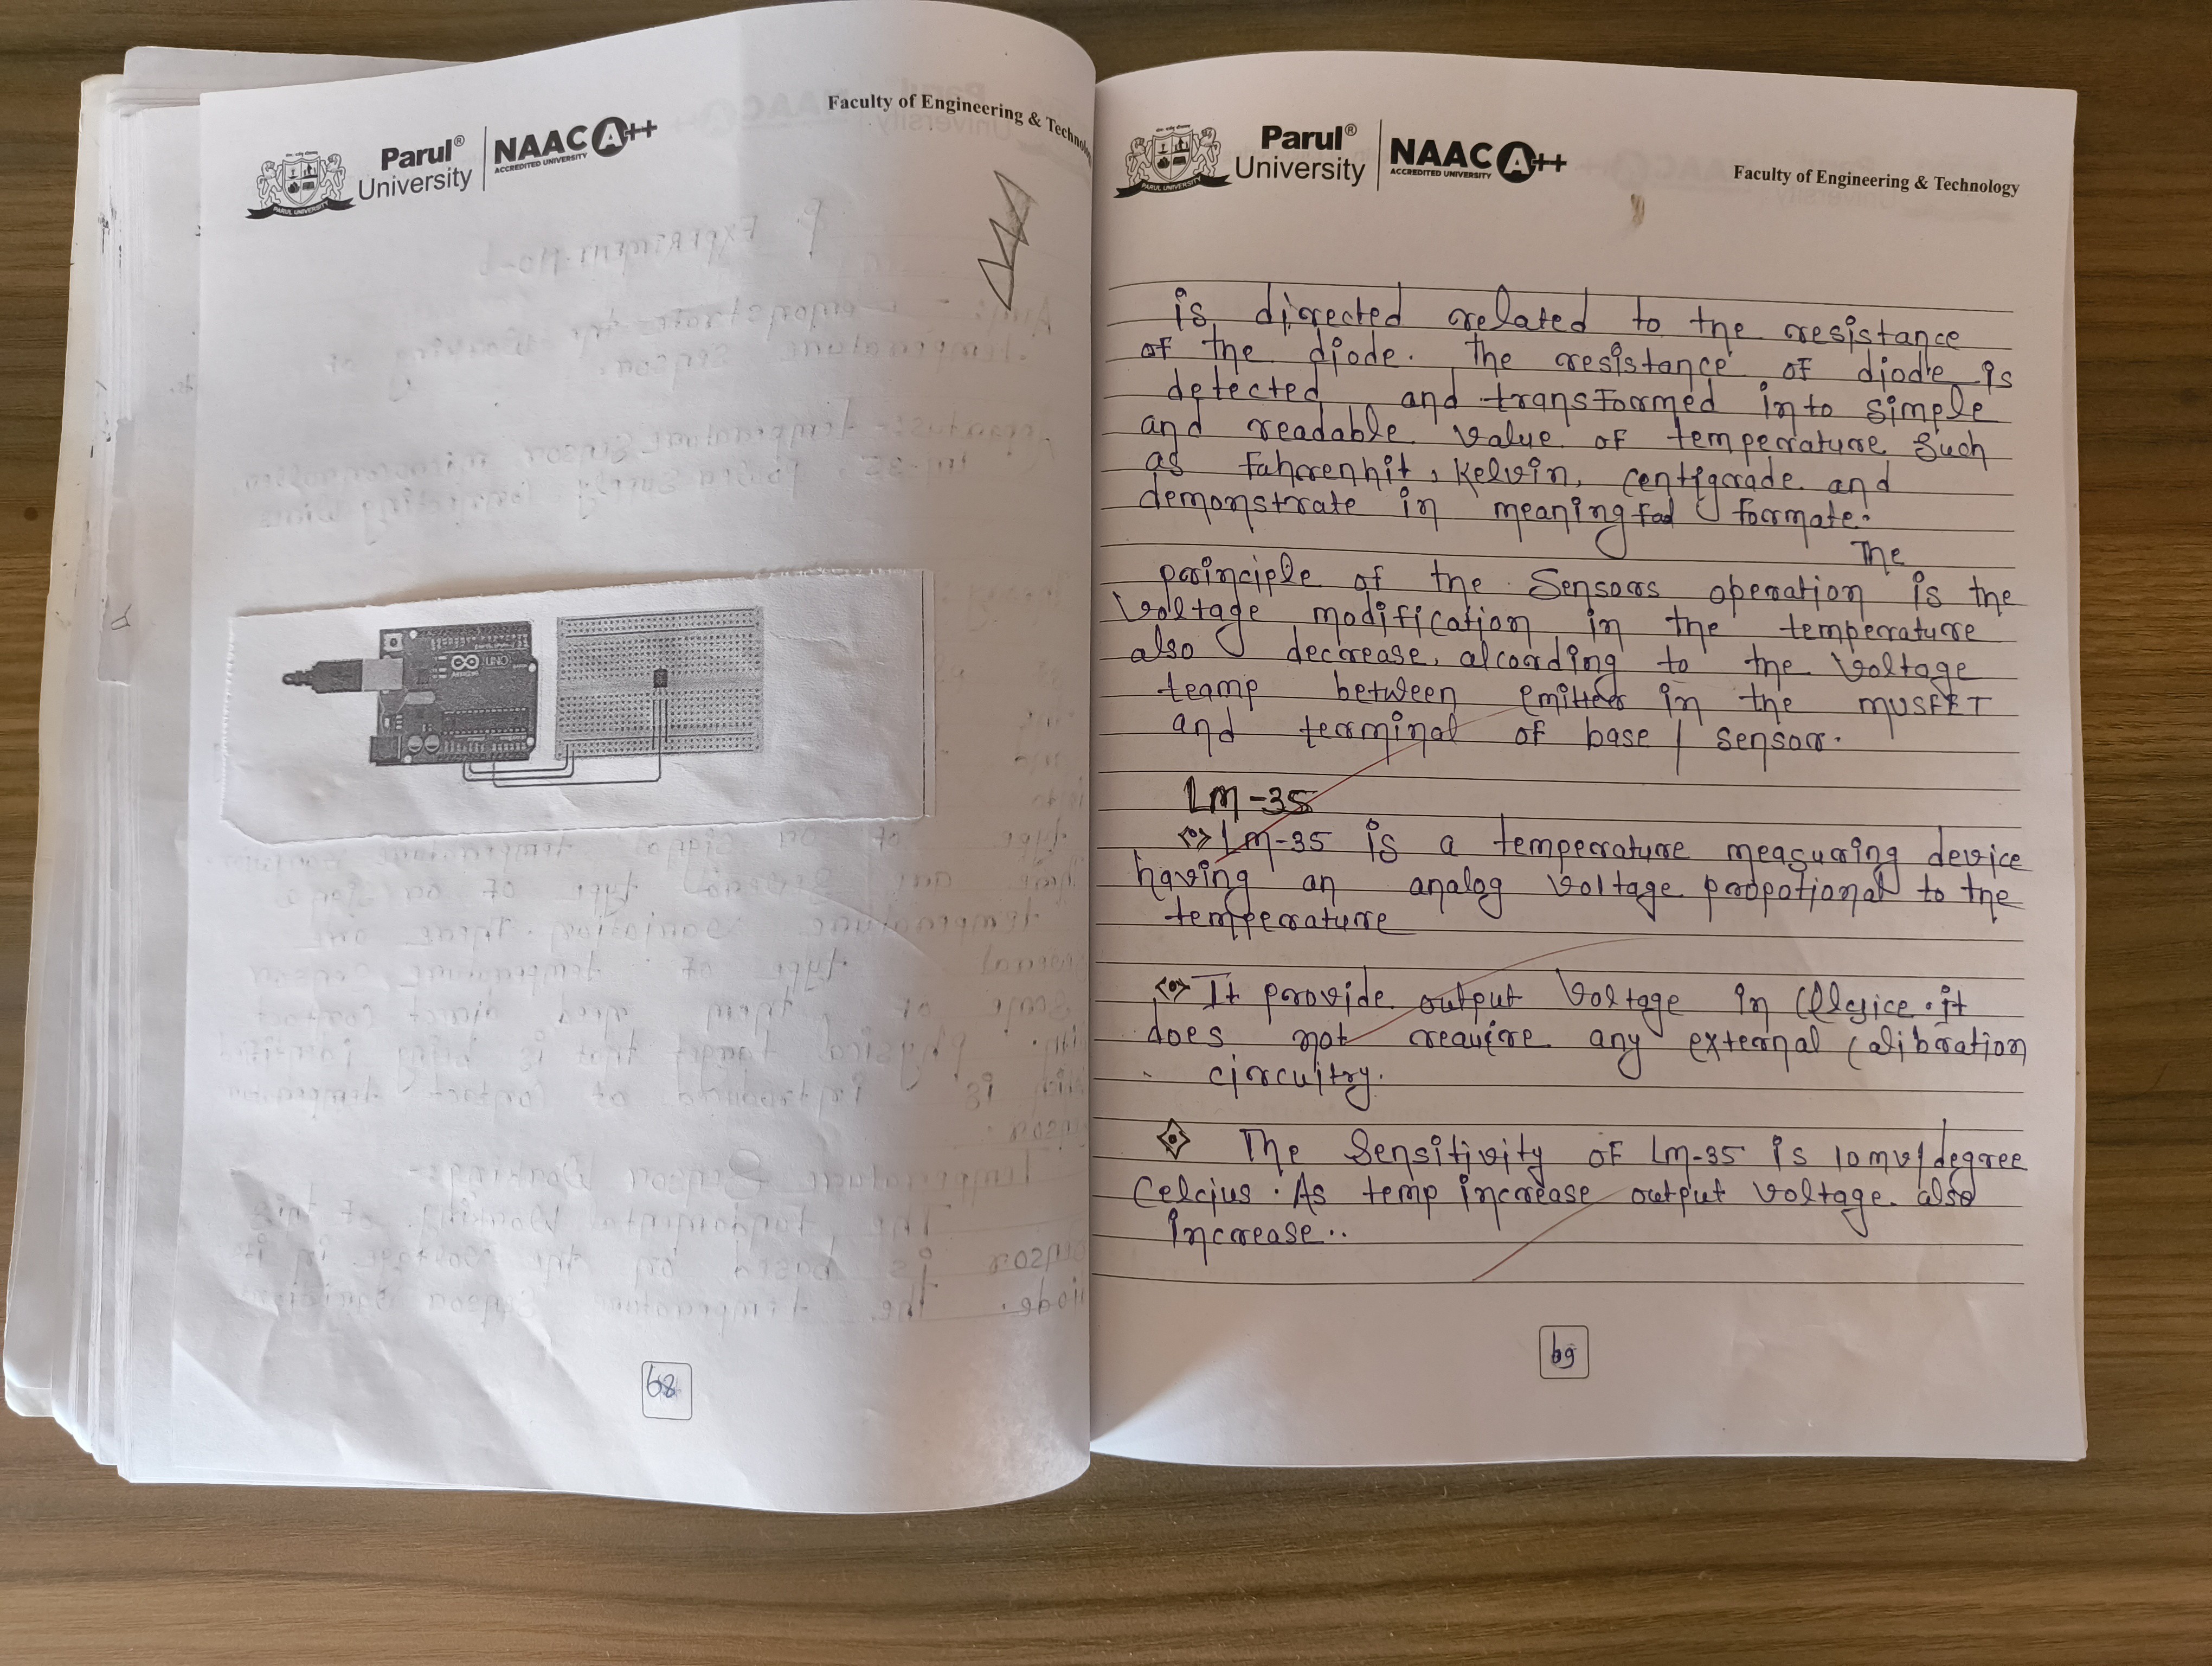 Parul®
University
NAAC A++
ACCREDITED UNIVERSITY
PARUL UNIVERSITY
Faculty of Engineering & Technology
UNO
ARDUINO
68
Parul®
University
NAAC A++
ACCREDITED UNIVERSITY
PARUL UNIVERSITY
Faculty of Engineering & Technology
is directed related to the resistance
of the diode. The resistance of diode is
detected and transformed into simple
and readable value of temperature such
as fahrenhit, Kelvin, centigrade and
demonstrate in meaning formate.
The
principle of the Sensors operation is the
Voltage modification in the temperature
also decrease. alcording to the Voltage
teamp between emitter in the MUSFET
and terminal of base / sensor.
LM-35
LM-35 is a temperature measuring device
having an analog Voltage propotional to the
temperature
It provide output Voltage in . it
does not require any external calibration
circuitry.
The Sensitivity of LM-35 is 10mv/degree
Celcius. As temp increase output voltage also
increase..
69